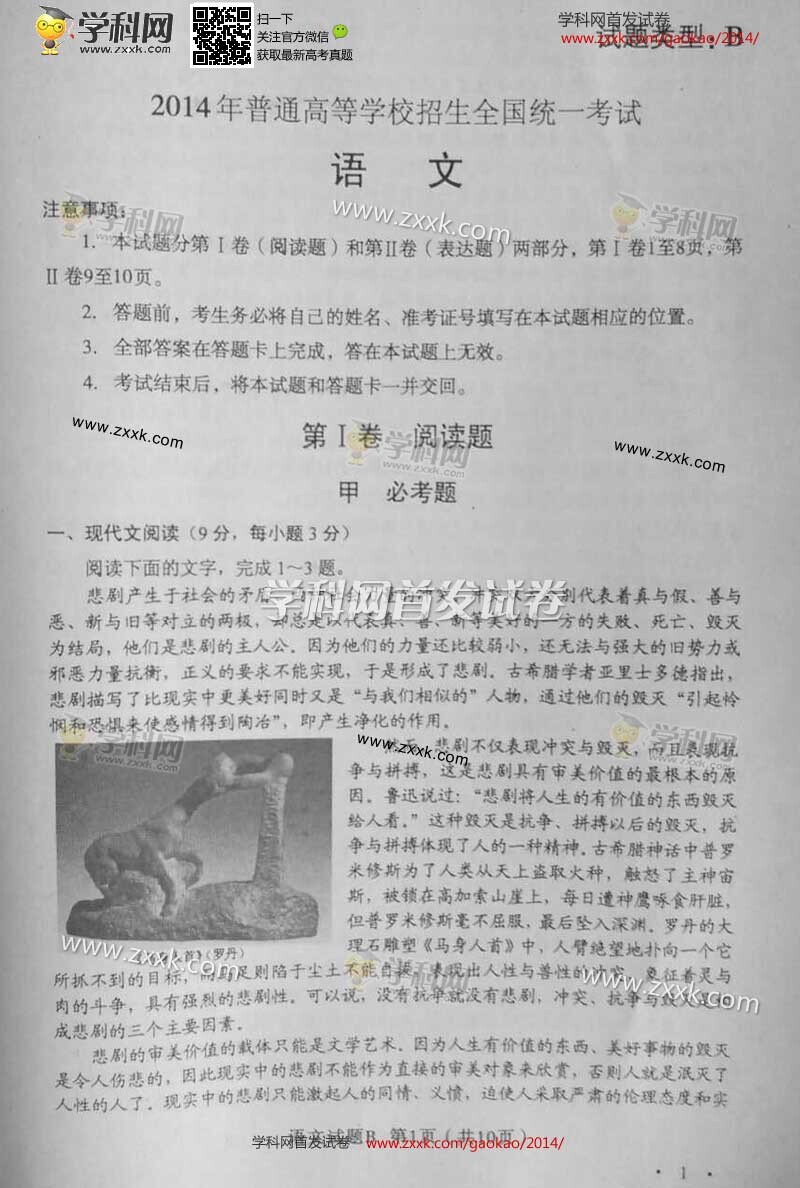 学科网
www.zxxk.com
扫一下
关注官方微信
获取最新高考真题
学科网首发试卷
www.zxxk.com/gaokao/2014/
试题类型：B
2014年普通高等学校招生全国统一考试
语 文
www.zxxk.com
学科网
学科网
注意事项：
1. 本试题分第Ⅰ卷（阅读题）和第Ⅱ卷（表达题）两部分，第Ⅰ卷1至8页，第
Ⅱ卷9至10页。
2. 答题前，考生务必将自己的姓名、准考证号填写在本试题相应的位置。
3. 全部答案在答题卡上完成，答在本试题上无效。
4. 考试结束后，将本试题和答题卡一并交回。
www.zxxk.com
第Ⅰ卷 阅读题
学科网
zxxk.com
www.zxxk.com
甲 必考题
一、现代文阅读（9分，每小题3分）
阅读下面的文字，完成1～3题。
学科网首发试卷
悲剧产生于社会的矛盾、两种社会力量的冲突。冲突双方分别代表着真与假、善与
恶、新与旧等对立的两极，却总是以代表真、善、新等美好的一方的失败、死亡、毁灭
为结局，他们是悲剧的主人公。因为他们的力量还比较弱小，还无法与强大的旧势力或
邪恶力量抗衡，正义的要求不能实现，于是形成了悲剧。古希腊学者亚里士多德指出，
悲剧描写了比现实中更美好同时又是“与我们相似的”人物，通过他们的毁灭“引起怜
悯和恐惧来使感情得到陶冶”，即产生净化的作用。
学科网
zxxk.com
www.zxxk.com
然而，悲剧不仅表现冲突与毁灭，而且表现抗
争与拼搏，这是悲剧具有审美价值的最根本的原
因。鲁迅说过：“悲剧将人生的有价值的东西毁灭
给人看。”这种毁灭是抗争、拼搏以后的毁灭，抗
争与拼搏体现了人的一种精神。古希腊神话中普罗
米修斯为了人类从天上盗取火种，触怒了主神宙
斯，被锁在高加索山崖上，每日遭神鹰啄食肝脏，
但普罗米修斯毫不屈服，最后坠入深渊。罗丹的大
理石雕塑《马身人首》中，人臂绝望地扑向一个它
人首》（罗丹）
www.zxxk.com
所抓不到的目标，而马足则陷于尘土不能自拔，表现出人性与兽性的冲突，象征着灵与
www.zxxk.com
肉的斗争，具有强烈的悲剧性。可以说，没有抗争就没有悲剧，冲突、抗争与毁灭是构
成悲剧的三个主要因素。
悲剧的审美价值的载体只能是文学艺术。因为人生有价值的东西、美好事物的毁灭
是令人伤悲的，因此现实中的悲剧不能作为直接的审美对象来欣赏，否则人就是泯灭了
人性的人了。现实中的悲剧只能激起人的同情、义愤，迫使人采取严肃的伦理态度和实
语文试题B 第1页（共10页）
学科网首发试卷 www.zxxk.com/gaokao/2014/
· 1 ·